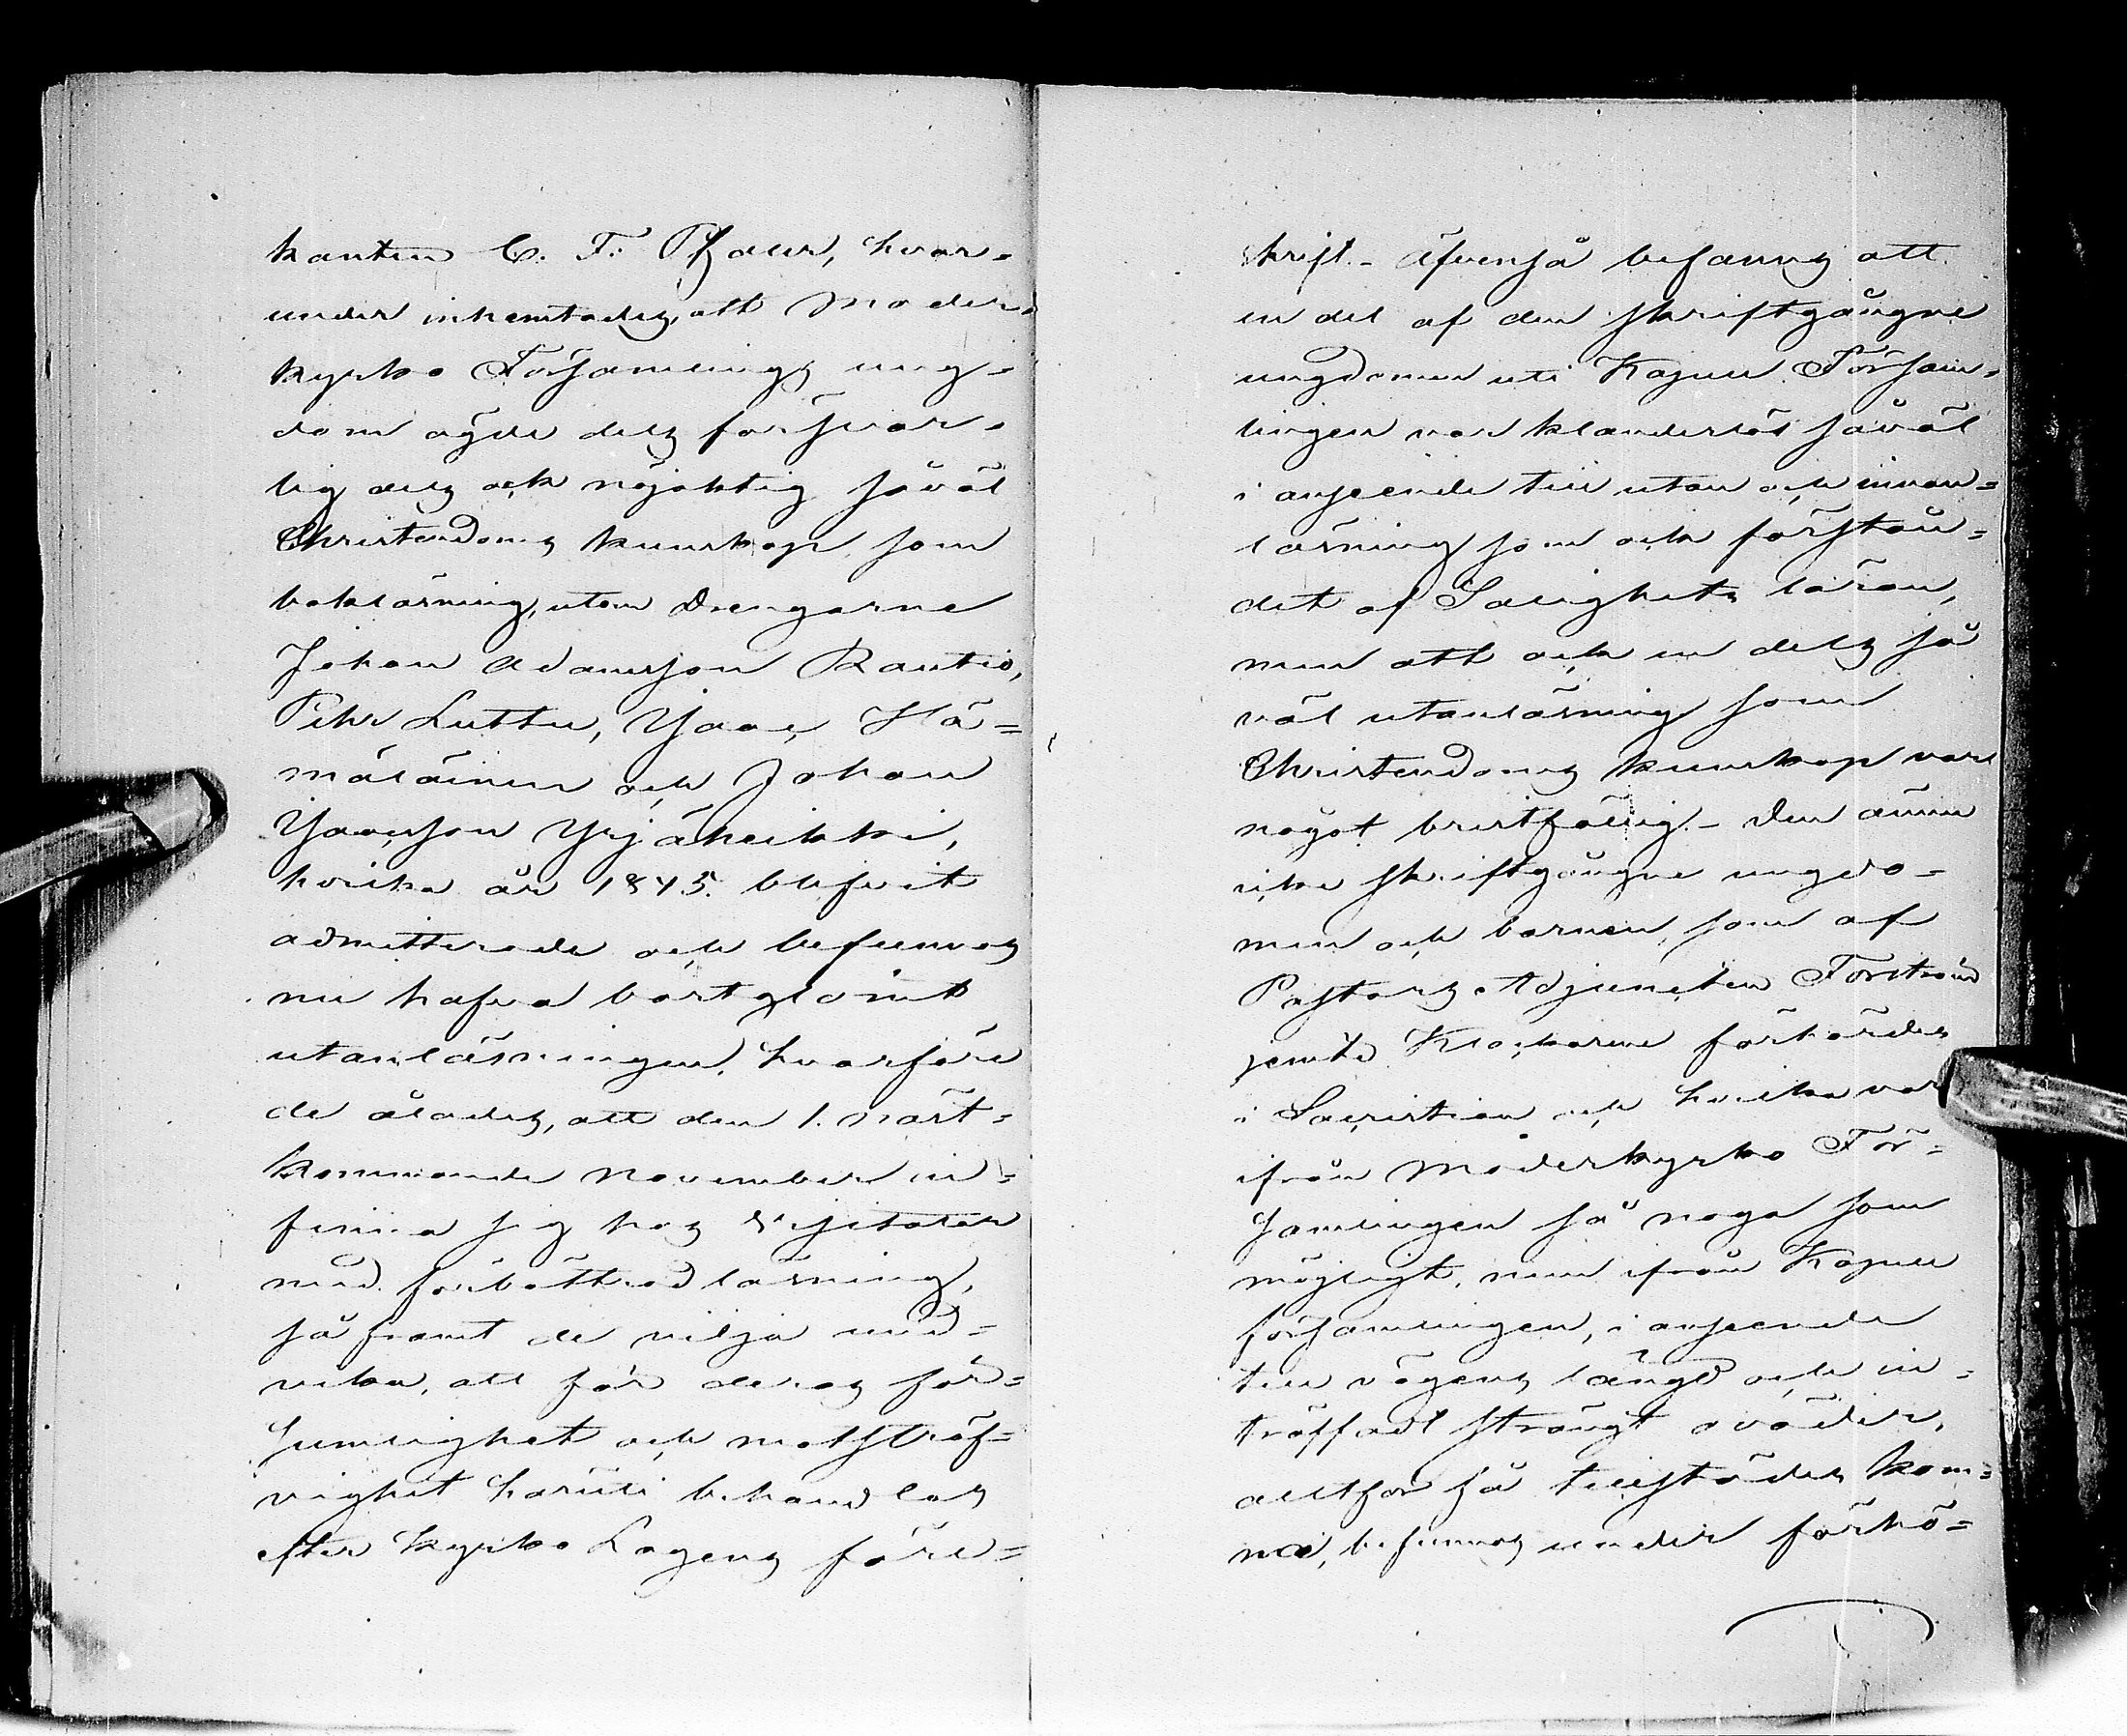 kanten C. F. Pfaler, hvar-
under inhemtades, att Moder-
kyrko Församlings ung-
dom ägde dels försvar-
lig dels och nöjaktig såväl
Christendoms kunskap, som
bokläsning, utom Drengarne
Johan Adamsson Rautio,
Pehr Luttu, Isaac Hä=
mäläinen och Johan
Isacsson Yrjänheikki,
hvilka år 1845. blifvit
admitterade och befunnos
nu hafva bortglömt
utanläsningen, hvarföre
de ålades, att den 1. näst=
kommande November in=
finna sig hos Visitator
med förbättrad läsning,
så framt de vilja und=
vika, att för deras för=
sumlighet och motsträf=
vighet häruti behandlas
efter Kyrko Lagens före=
skrift. - Äfvenså befanns att
en del af den skriftgångne
ungdomen uti Kapell Försam-
lingen var klanderlös såväl
i anseende till utan och innan=
läsning som och förstån=
det af Salighets läran,
men att och en dels så
väl utanläsning som
Christendoms kunskap vare
något bristfällig. - Den ännu
icke skriftgångne ungdo=
men och barnen, som af
Pastors Adjuncten Forström
jemte Klockarne förhördes
i Sacristian och hvilka vore
ifrån Moderkyrko För=
samlingen så noga som
möjligt, men ifrån Kapell
församlingen, i anseende
till vägens längd och in=
träffadt strängt oväder,
alltför få tillstädes kom=
ne, befunnos under förhö=